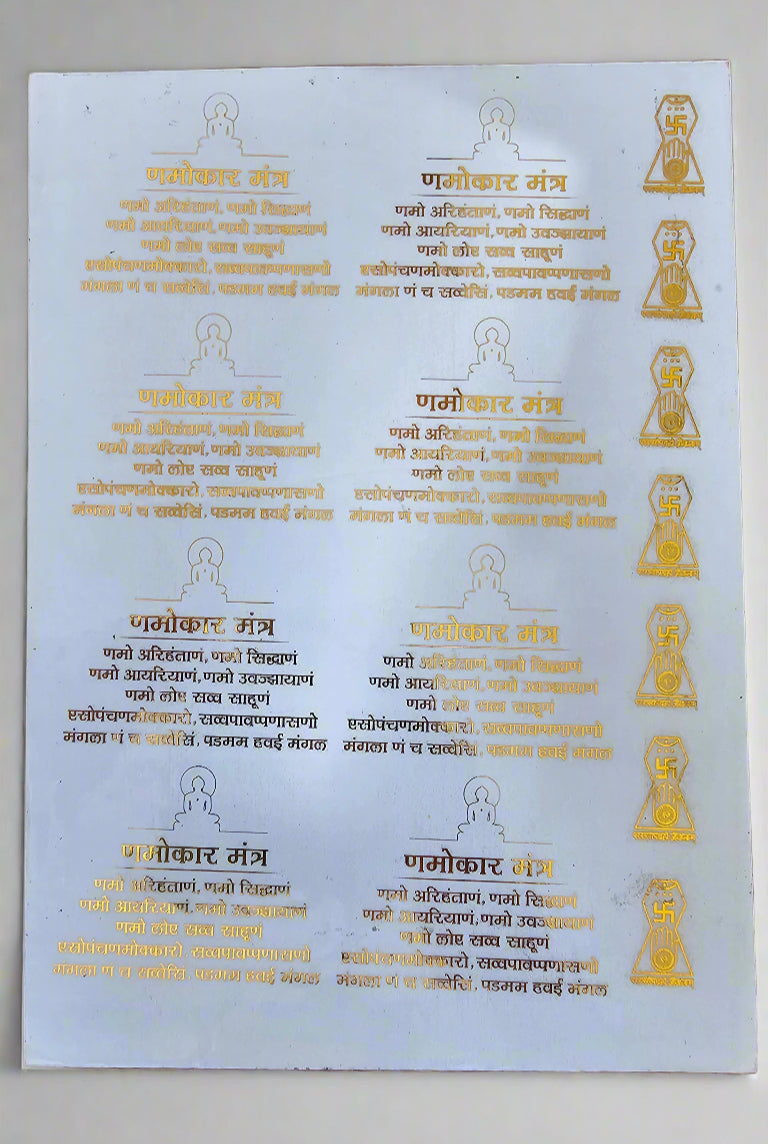 णमोकार मंत्र
णमो अरिहंताणं, णमो सिद्धाणं
णमो आयरियाणं, णमो उवज्झायाणं
णमो लोए सव्व साहूणं
एसोपंचणमोक्कारो, सव्वपावप्पणासणो
मंगला णं च सव्वेसिं, पडमम हवई मंगल
णमोकार मंत्र
णमो अरिहंताणं, णमो सिद्धाणं
णमो आयरियाणं, णमो उवज्झायाणं
णमो लोए सव्व साहूणं
एसोपंचणमोक्कारो, सव्वपावप्पणासणो
मंगला णं च सव्वेसिं, पडमम हवई मंगल
णमोकार मंत्र
णमो अरिहंताणं, णमो सिद्धाणं
णमो आयरियाणं, णमो उवज्झायाणं
णमो लोए सव्व साहूणं
एसोपंचणमोक्कारो, सव्वपावप्पणासणो
मंगला णं च सव्वेसिं, पडमम हवई मंगल
णमोकार मंत्र
णमो अरिहंताणं, णमो सिद्धाणं
णमो आयरियाणं, णमो उवज्झायाणं
णमो लोए सव्व साहूणं
एसोपंचणमोक्कारो, सव्वपावप्पणासणो
मंगला णं च सव्वेसिं, पडमम हवई मंगल
णमोकार मंत्र
णमो अरिहंताणं, णमो सिद्धाणं
णमो आयरियाणं, णमो उवज्झायाणं
णमो लोए सव्व साहूणं
एसोपंचणमोक्कारो, सव्वपावप्पणासणो
मंगला णं च सव्वेसिं, पडमम हवई मंगल
णमोकार मंत्र
णमो अरिहंताणं, णमो सिद्धाणं
णमो आयरियाणं, णमो उवज्झायाणं
णमो लोए सव्व साहूणं
एसोपंचणमोक्कारो, सव्वपावप्पणासणो
मंगला णं च सव्वेसिं, पडमम हवई मंगल
णमोकार मंत्र
णमो अरिहंताणं, णमो सिद्धाणं
णमो आयरियाणं, णमो उवज्झायाणं
णमो लोए सव्व साहूणं
एसोपंचणमोक्कारो, सव्वपावप्पणासणो
मंगला णं च सव्वेसिं, पडमम हवई मंगल
णमोकार मंत्र
णमो अरिहंताणं, णमो सिद्धाणं
णमो आयरियाणं, णमो उवज्झायाणं
णमो लोए सव्व साहूणं
एसोपंचणमोक्कारो, सव्वपावप्पणासणो
मंगला णं च सव्वेसिं, पडमम हवई मंगल